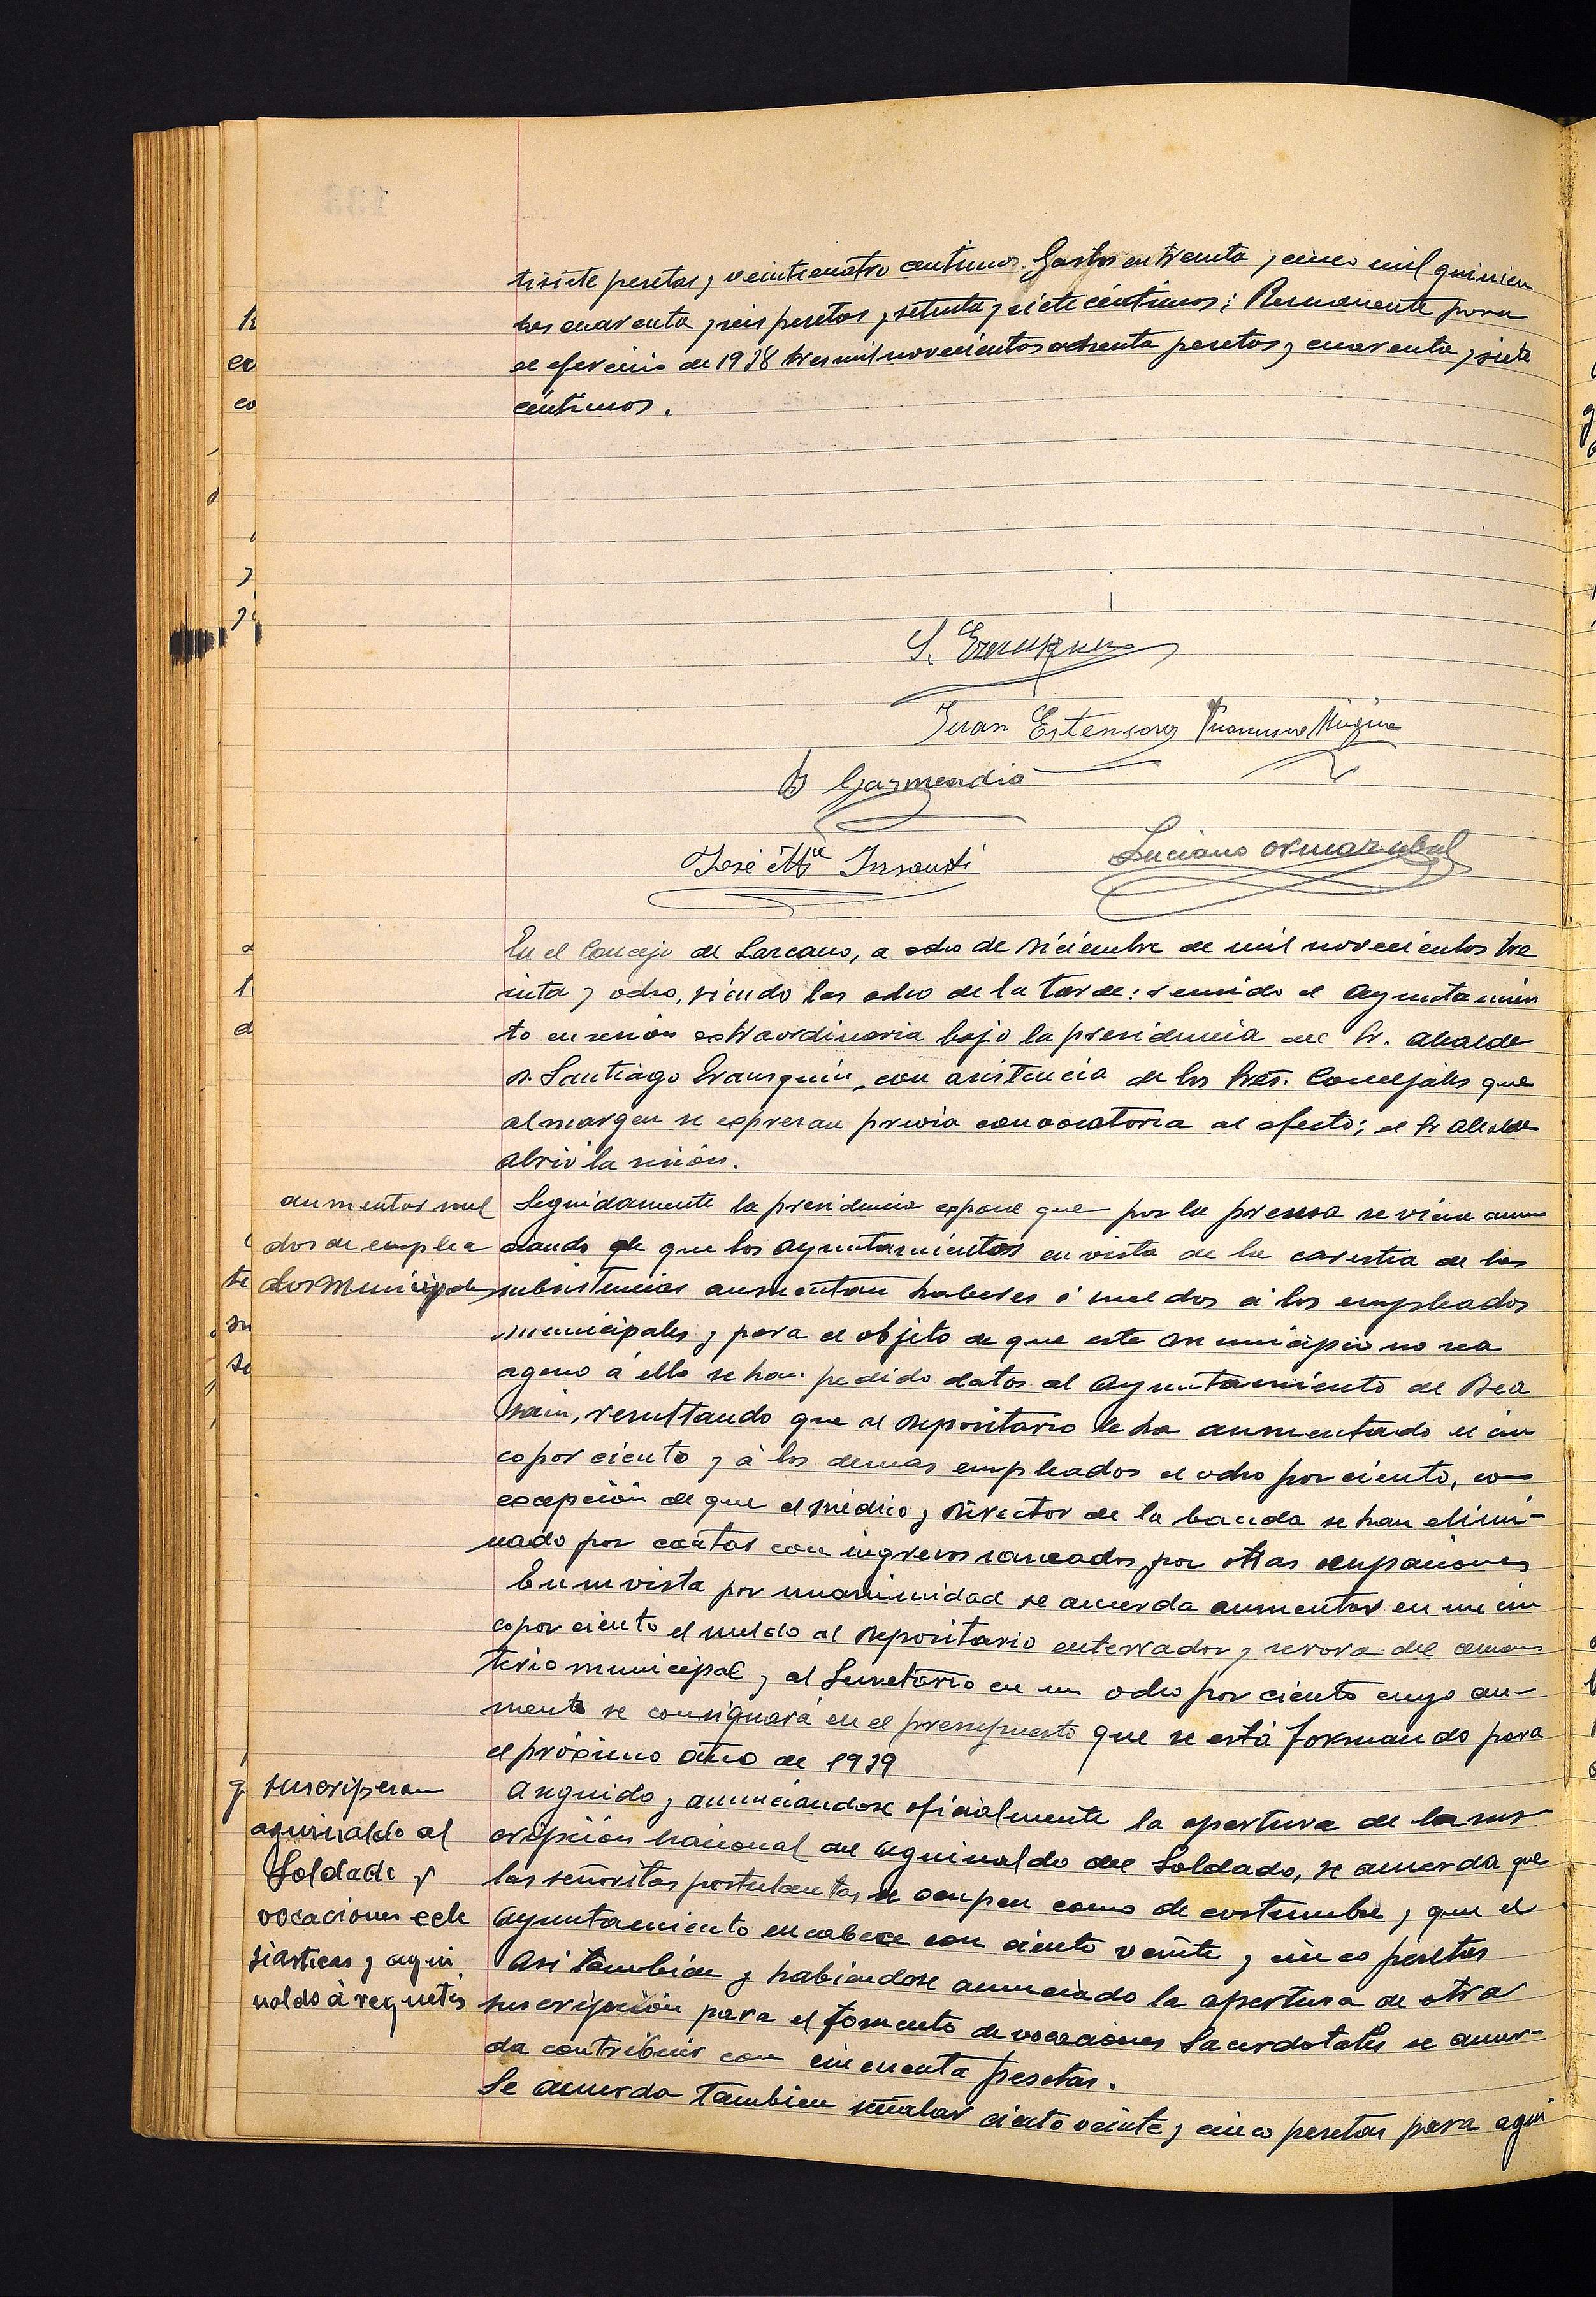 tisiete pesetas y veinticuatro centimos. Gastos en treinta y cinco mil quinien
tos cuarenta y seis pesetas y setenta y siete céntimos; Remanente para
el ejercicio de 1938 tres mil novecientos ochenta pesetas y cuarenta y siete
céntimos.
S.
Juan Estensoro Francisco Mugica
B Garmendia
José Mª Insausti
Luciano Ormazabal
En el Concejo de Lazcano, a ocho de Diciembre de mil novecientos tre
inta y ocho, siendo las ocho de la tarde: reunido el Ayuntamien
to en sesión extraordinaria bajo la presidencia del Sr. Alcalde
D. Santiago Erausquin, con asistencia de los Sres. Concejales que
al margen se expresan previa convocatoria al efecto; el Sr Alcalde
abrió la sesión.
aumentar suel
dos de emplea
dos municipales
Seguidamente la presidencia expone que por la prensa se viene anun
ciando de que los Ayuntamientos en vista de la carestia de las
subsistencias aumentan haberes ó sueldos á los empleados
municipales y para el objeto de que este municipio no sea
ageno á ello se han pedido datos al Ayuntamiento de Bea
sain, resultando que al Depositario le ha aumentado el cin
co por ciento y á los demas empleados el ocho por ciento, con
excepción de que el médico y Director de la banda se han elimi-
nado por contar con ingresos saneados por otras ocupaciones
En su vista por unanimidad se acuerda aumentar en un cin
co por ciento el sueldo al Depositario enterrador y serora del cemen
terio municipal y al Secretario en un ocho por ciento cuyo au-
mento se consignará en el presupuesto que se está formando para
el próximo año de 1939
suscripcion
aguinaldo al
Soldado y
vocaciones ecle
siasticas y agui
naldo á requetés
Aseguido y anunciandose oficialmente la apertura de la sus
cripción nacional del aguinaldo del Soldado, se acuerda que
las señoritas postulantas se ocupen como de costumbre y que el
Ayuntamiento encabece con ciento veinte y cinco pesetas
Asi tambien y habiendose anunciado la apertura de otra
suscripción para el fomento de vocaciones Sacerdotales se acuer-
da contribuir con cincuenta pesetas.
Se acuerda tambien señalar ciento veinte y cinco pesetas para agui